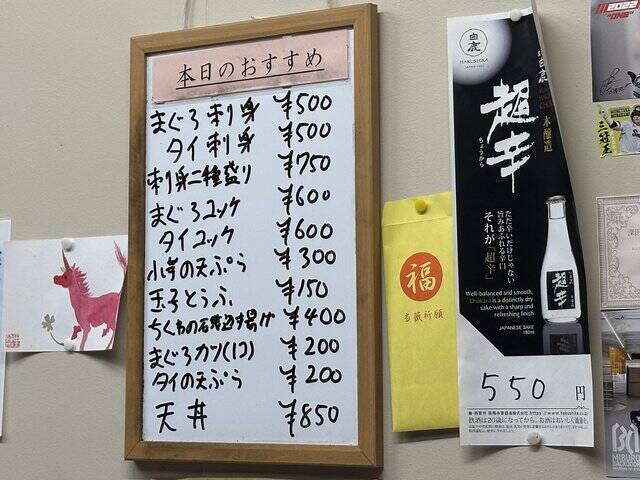 本日のおすすめ
まぐろ刺身 ¥500
タイ刺身 ¥500
刺身二種盛り ¥750
まぐろユッケ ¥600
タイユッケ ¥600
小芋の天ぷら ¥300
玉子とうふ ¥150
ちくわの石垣込す揚げ ¥400
まぐろカツ(1コ) ¥200
タイの天ぷら ¥200
天丼 ¥850
福
当籤祈願
白鹿
HAKUSHIKA
白鹿
本醸造
超辛
ちょうから
ただ辛いだけじゃない
旨みあふれる辛口
それが「超辛」
超辛
Well-balanced and smooth,
Chokara is a distinctly dry
sake with a sharp and
refreshing finish.
JAPANESE SAKE
180ml
550円
飲酒は20歳になってから。お酒はおいしく適量を。
2022
"ONE"
三冠王